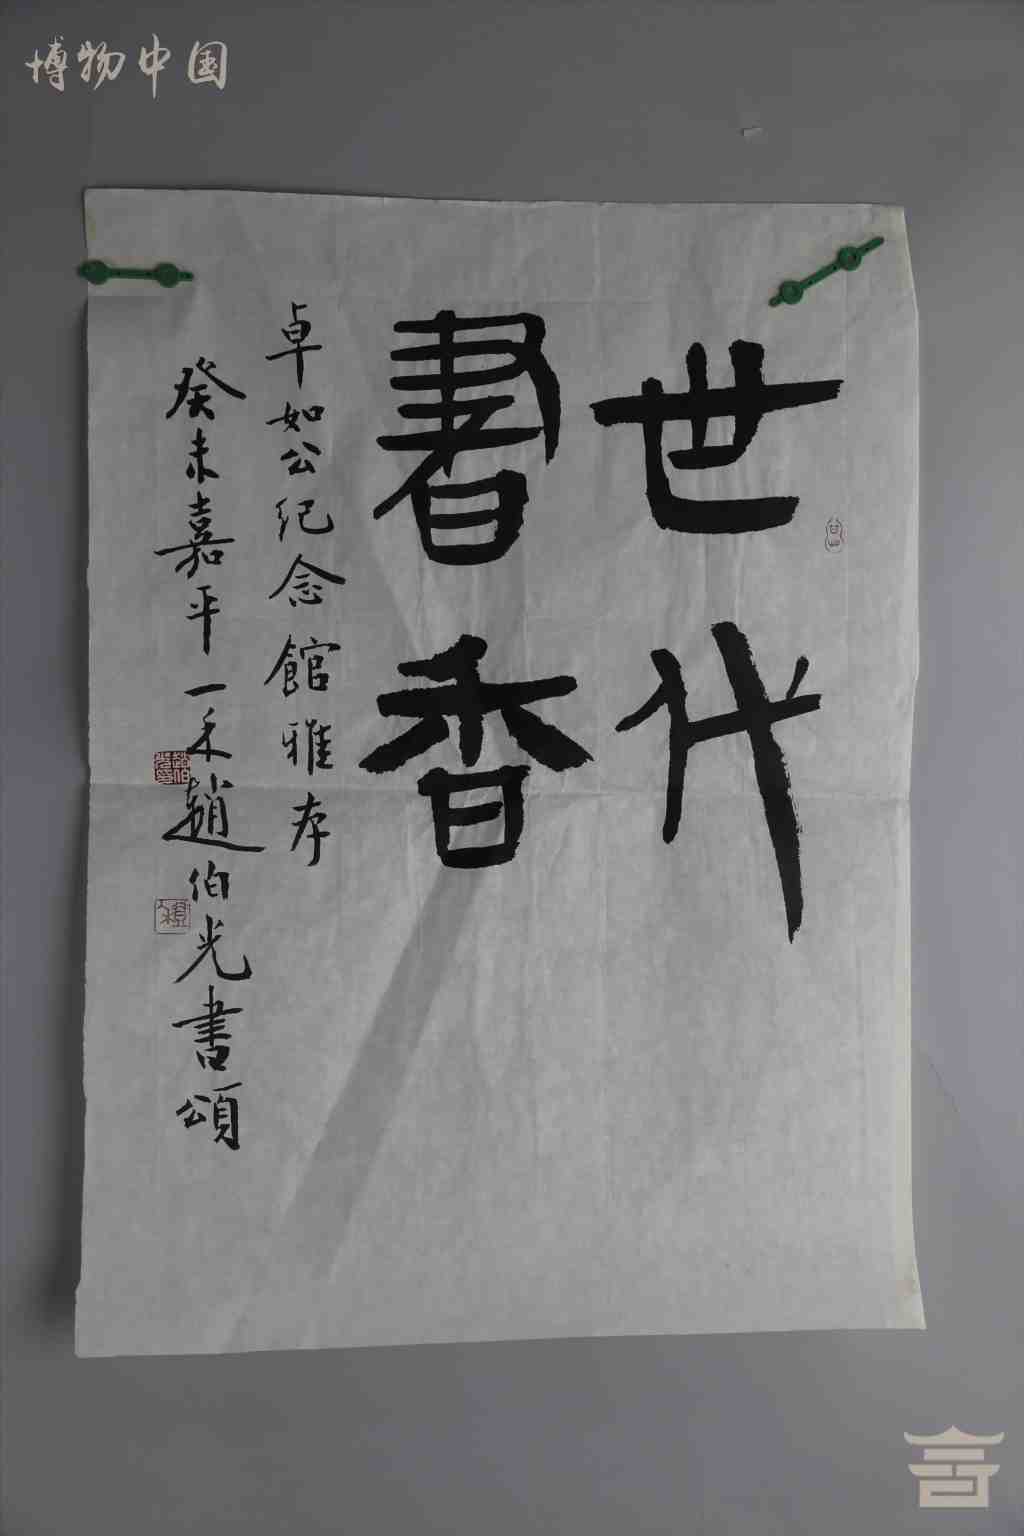 博物中国
世代
書香
卓如公纪念館雅存
癸未嘉平一禾趙伯光書頌